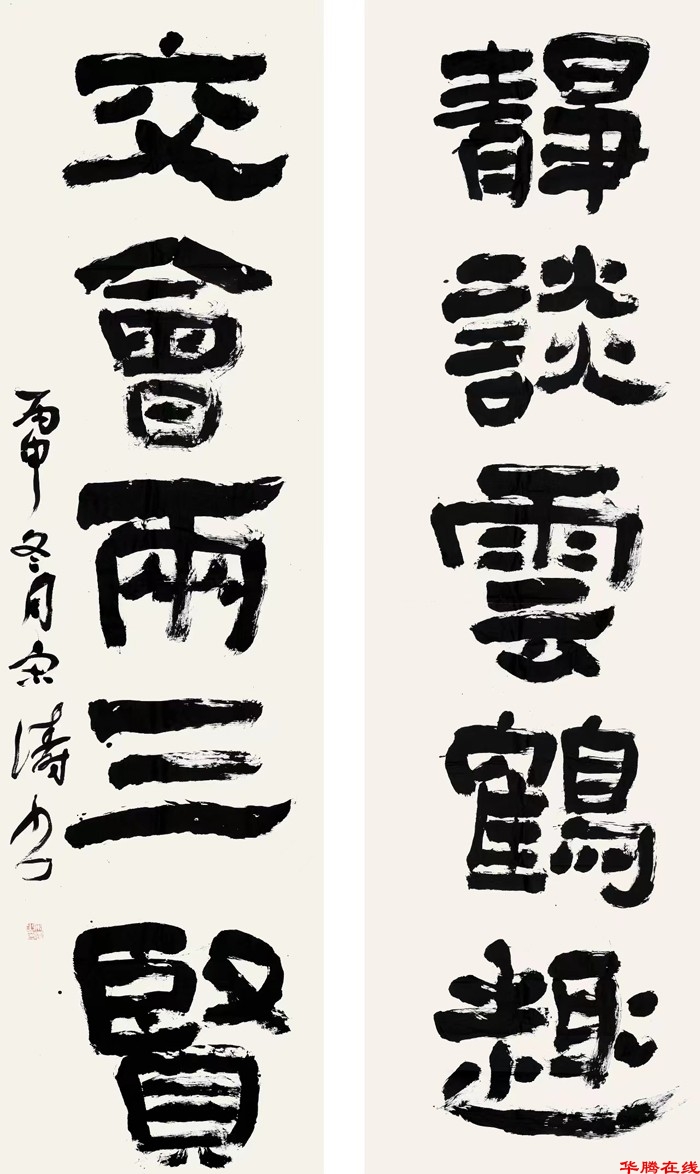 靜談雲鶴趣
交會兩三賢
丙申冬月宋濤書
华腾在线